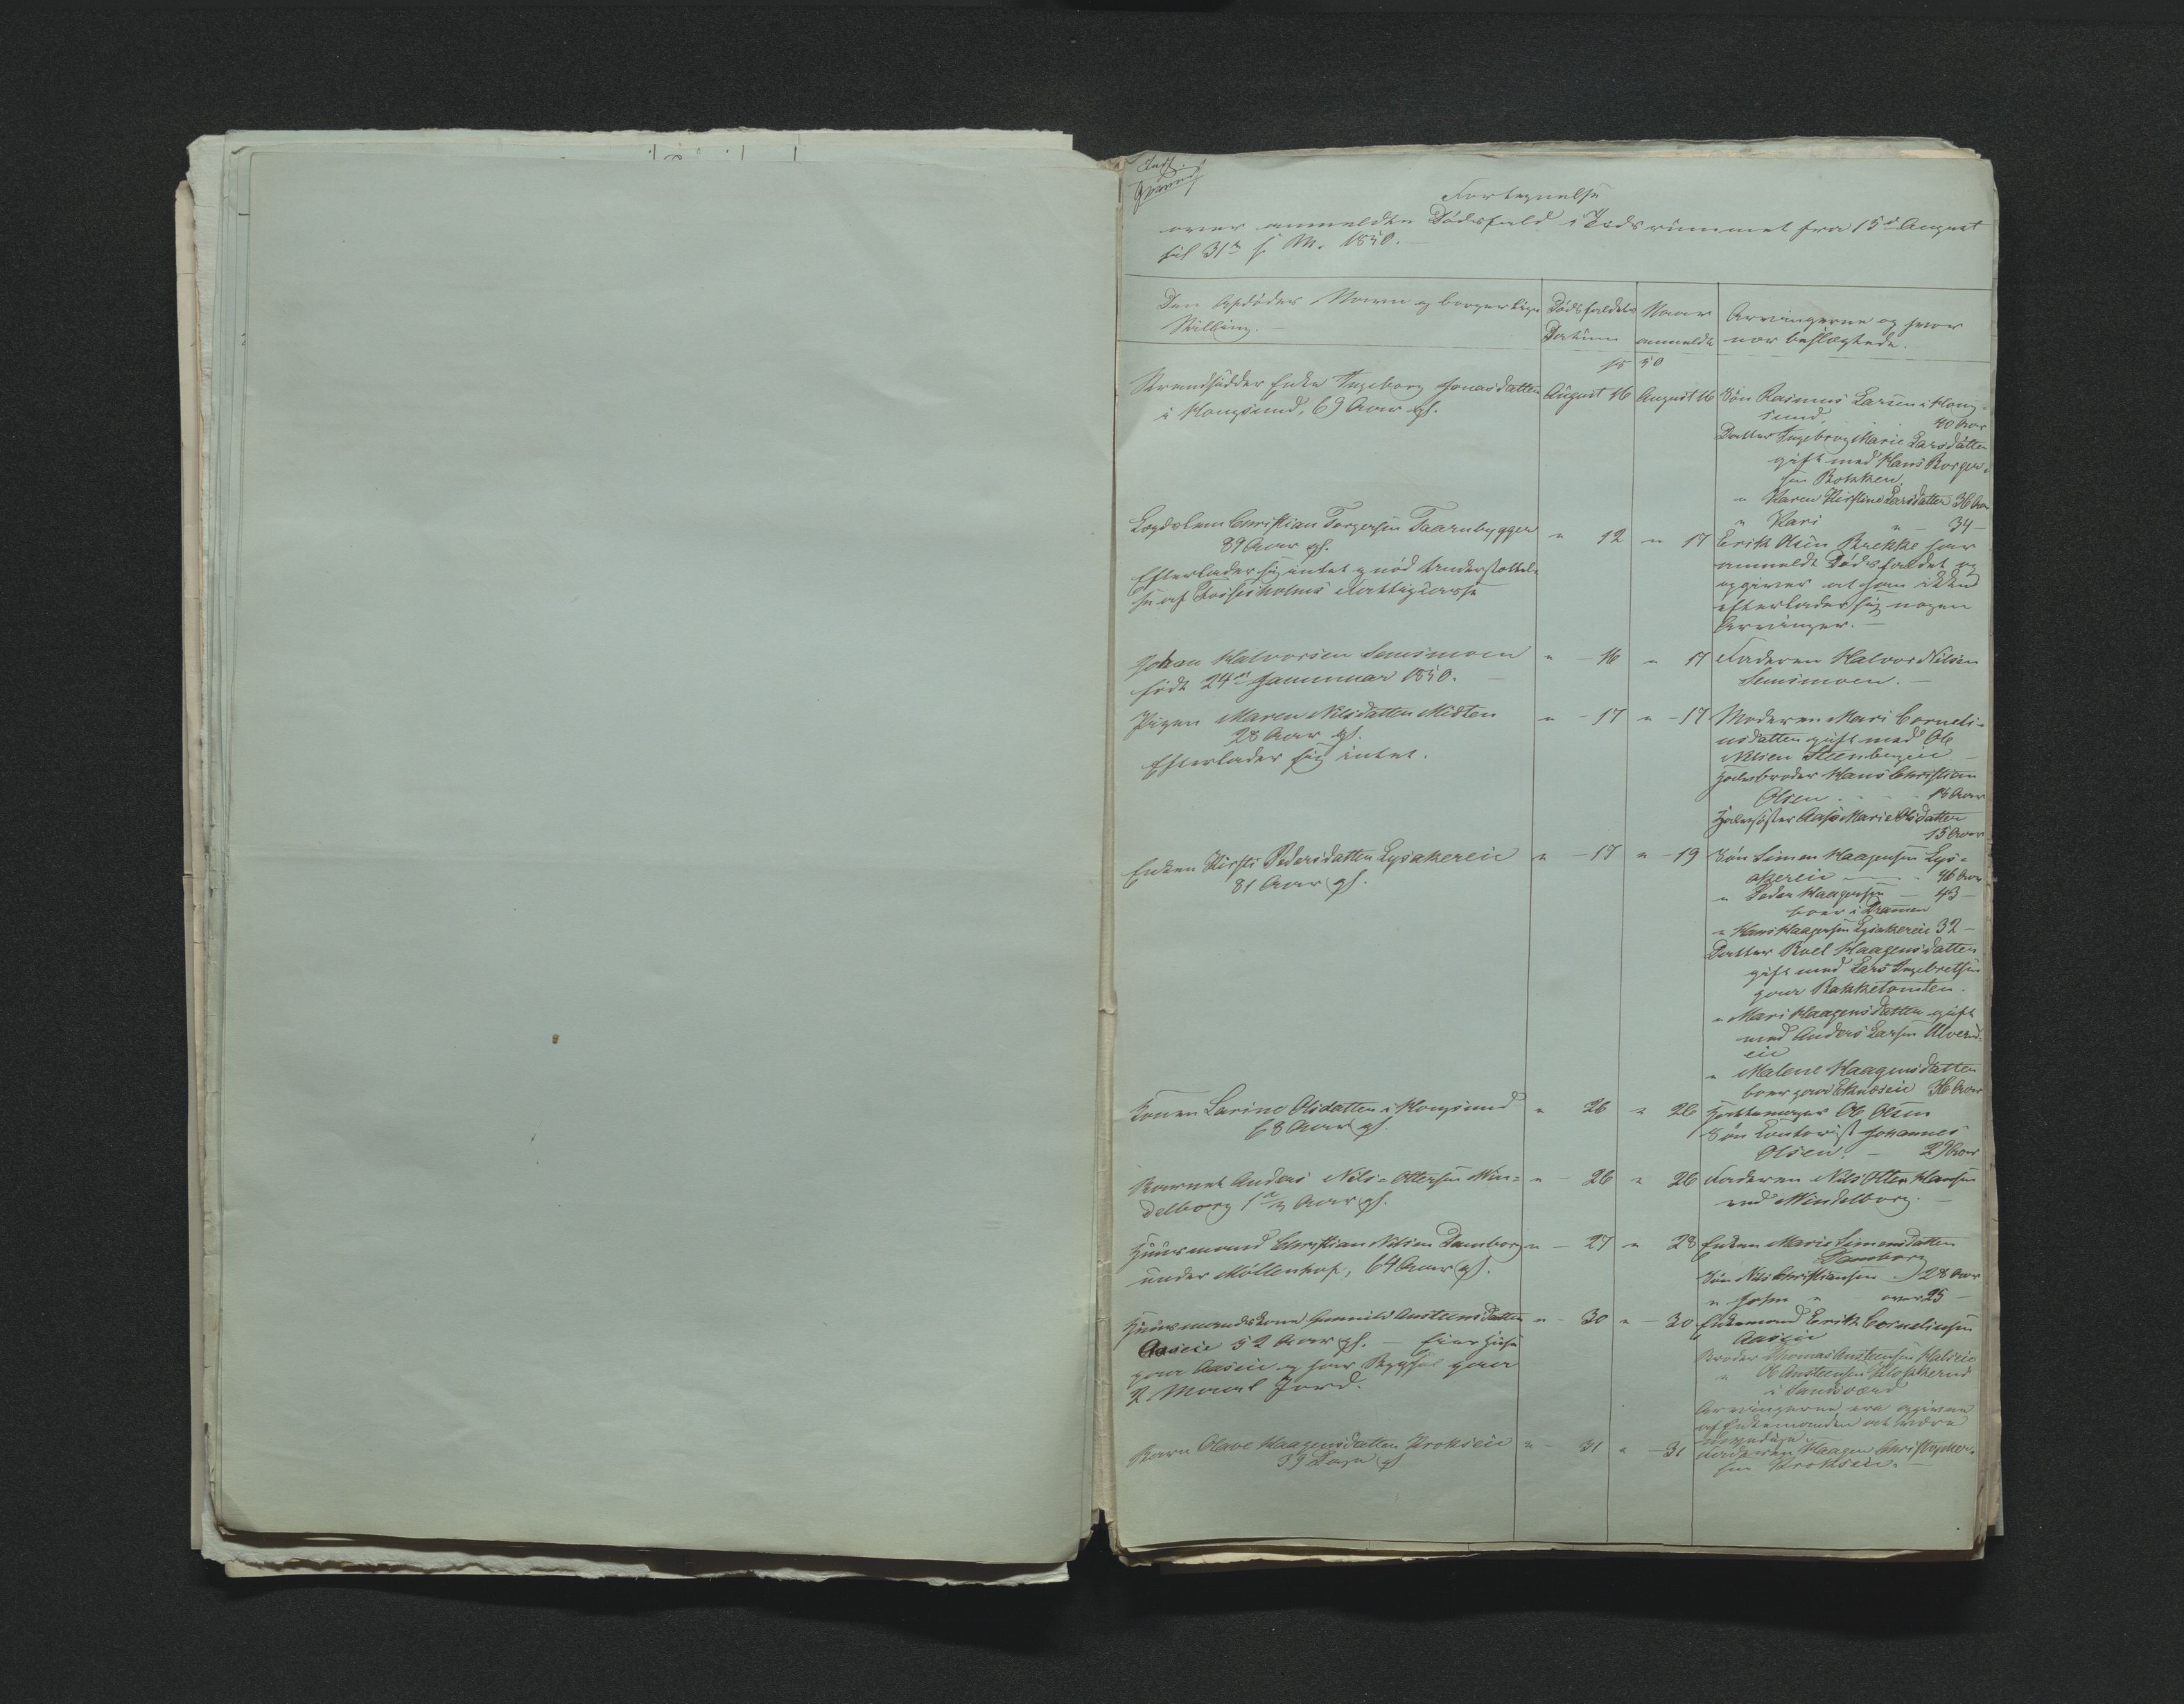 Fortegnelse
over anmeldte Dødsfald i Tidsrummet fra 15de August
til 31te s. M. 1850.
Den Afdødes Navn og borgerlige
Stilling.
Dødsfaldets
Datum
Naar
anmeldt
Arvingerne og hvor
nær beslægtede.
18 50
Strandsidder Enke Ingeborg Jonasdatter
i Hougsund, 69 Aar gl.
August 16
August 16
Søn Rasmus Larsen i Houg-
sund, 40 Aar
Datter Ingeborg Marie Larsdatter
gift med Hans Borger-
sen Bakken
" Karen Kirstine Larsdatter 36 Aar
" Kari " - 34 -
Lægdslem Christian Torgersen Taarnbygger
89 Aar gl.
Efterlader sig intet og nød Understøttel-
se af Fossesholms Fattigkasse
" 12
" 17
Erik Olsen Brekke har
anmeldt Dødsfaldet og
opgiver at han ikke
efterlader sig nogen
Arvinger. -
Johan Halvorsen Semsmoen
født 24de Januuar 1850. -
" - 16
" 17
Faderen Halvor Nilsen
Semsmoen. -
Pigen Maren Nilsdatter Midten
28 Aar gl.
Efterlader sig intet.
" - 17
" - 17
Moderen Mari Corneli-
usdatter gift med Ole
Nilsen Steenbergeie
Halvbroder Hans Christian
Olsen - - 18 Aar
Halvsøster Aase Marie Olsdatter
15 Aar
Enken Kirsti Pedersdatter Lysakereie
81 Aar gl.
" - 17
" - 19
Søn Simen Haagensen Lys-
akereie - - 46 Aar
" Peder Haagensen - 43 -
boer i Drammen
" Hans Haagensen Lysakereie 32 -
Datter Roel Haagensdatter
gift med Lars Ingebretsen
paa Bakketomten.
" Mari Haagensdatter gift
med Anders Larsen Ulverud-
eie
" Malene Haagensdatter
boer paa 36 Aar
Konen Larine Olsdatter i Hougsund
68 Aar gl.
" 26
" 26
Ole Olsen
Søn Contorist Johannes
Olsen. - 29 Aar
Barnet Anders Nils-Ottersen Min-
delborg 1 Aar gl.
" - 26
" 26
Faderen Nils Otter Hansen
Mindelborg. -
Huusmand Christian Nilsen Damborg
under Møllenhof, 64 Aar gl.
" - 27
" 28
Enken Marie Simensdatter
Damborg
Søn Nils Christiansen 28 Aar
" John " over 25 -
Huusmandskone Gunnild Austensdatter
Aaseie 52 Aar gl. - Eier Huse
paa Aaseie og har Bygsel paa
2 Maal Jord.
" - 30
" - 30
Enkemand Erik Corneliussen
Aaseie
Broder Thomas Austensen
" Ole Austensen
i Sandsværd
Arvingerne ere opgivne
af Enkemanden at være
Barn Olave Haagensdatter Krokseie
39 Dage gl
" - 31
" - 31
Faderen Haagen Christopher-
sen Krokseie. -